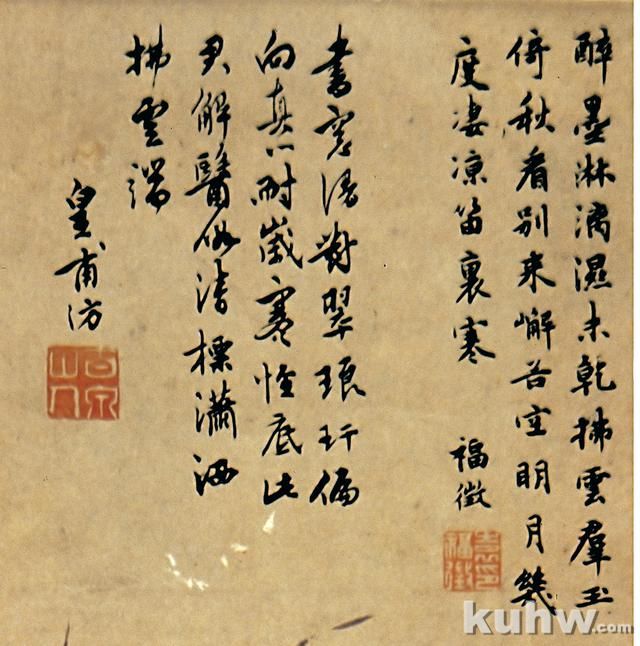 醉墨淋漓濕未乾拂雲羣玉
倚秋看別來嶰谷空明月幾
度淒涼笛裏寒
福徵
書窓清對翠琅玕偏
向真心耐歲寒怪底此
君解醫俗清標瀟洒
拂雲端
皇甫汸
kuhw.com